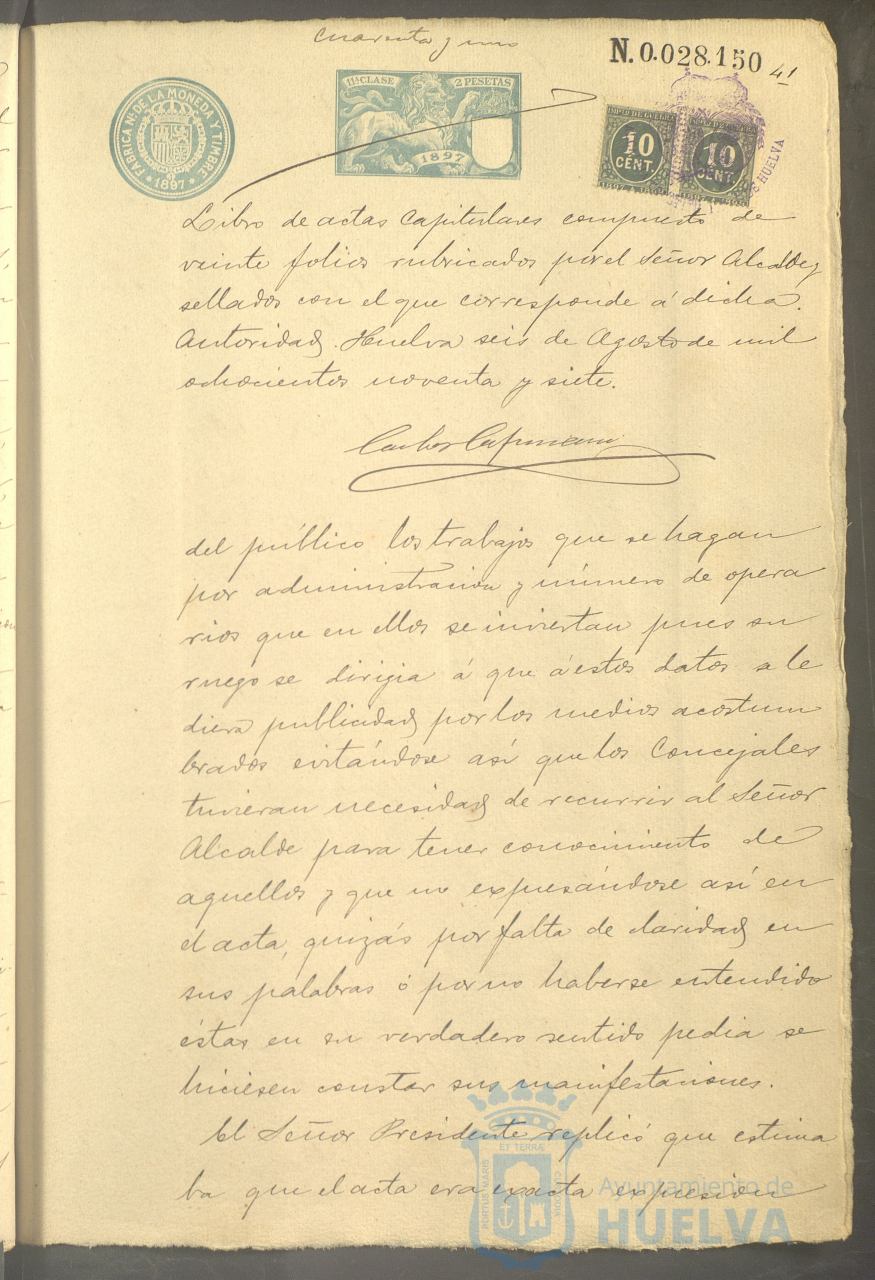 cuarenta y uno
N. 0.028.150
41
FABRICA NAL. DE LA MONEDA Y TIMBRE
1897
11ª CLASE 2 PESETAS
1897
IMPTO DE GUERRA
10 CENT.
10 CENT.
DE HUELVA
Libro de actas Capitulares compuesto de
veinte folios rubricados por el Señor Alcalde y
sellados con el que corresponde á dicha
Autoridad. Huelva seis de Agosto de mil
ochocientos noventa y siete.
Carlos
del público los trabajos que se hagan
por administracion y número de opera
rios que en ellos se inviertan pues su
ruego se dirigia á que á estos datos se le
diera publicidad por los medios acostum
brados evitándose así que los Concejales
tuvieran necesidad de recurrir al Señor
Alcalde para tener conocimiento de
aquellos y que no expresándose así en
el acta, quizás por falta de claridad en
sus palabras ó por no haberse entendido
éstas en su verdadero sentido pedia se
hiciesen constar sus manifestaciones.
El Señor Presidente replicó que estima
ba que el acta era exacta expresion
PORTUS MARIS
ET TERRÆ
CUSTODIA
Ayuntamiento de
HUELVA